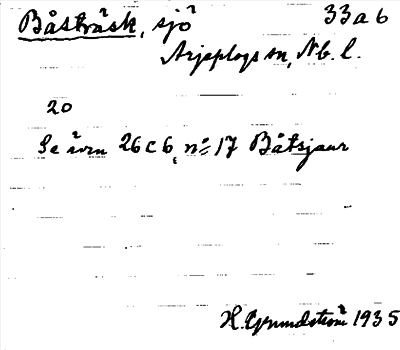 Båsträsk, sjö 33 a b
Arjeplogs sn, Nb. l.
20
Se även 26 c 6, nº 17 Båtsjaur
H. Grundström 1935